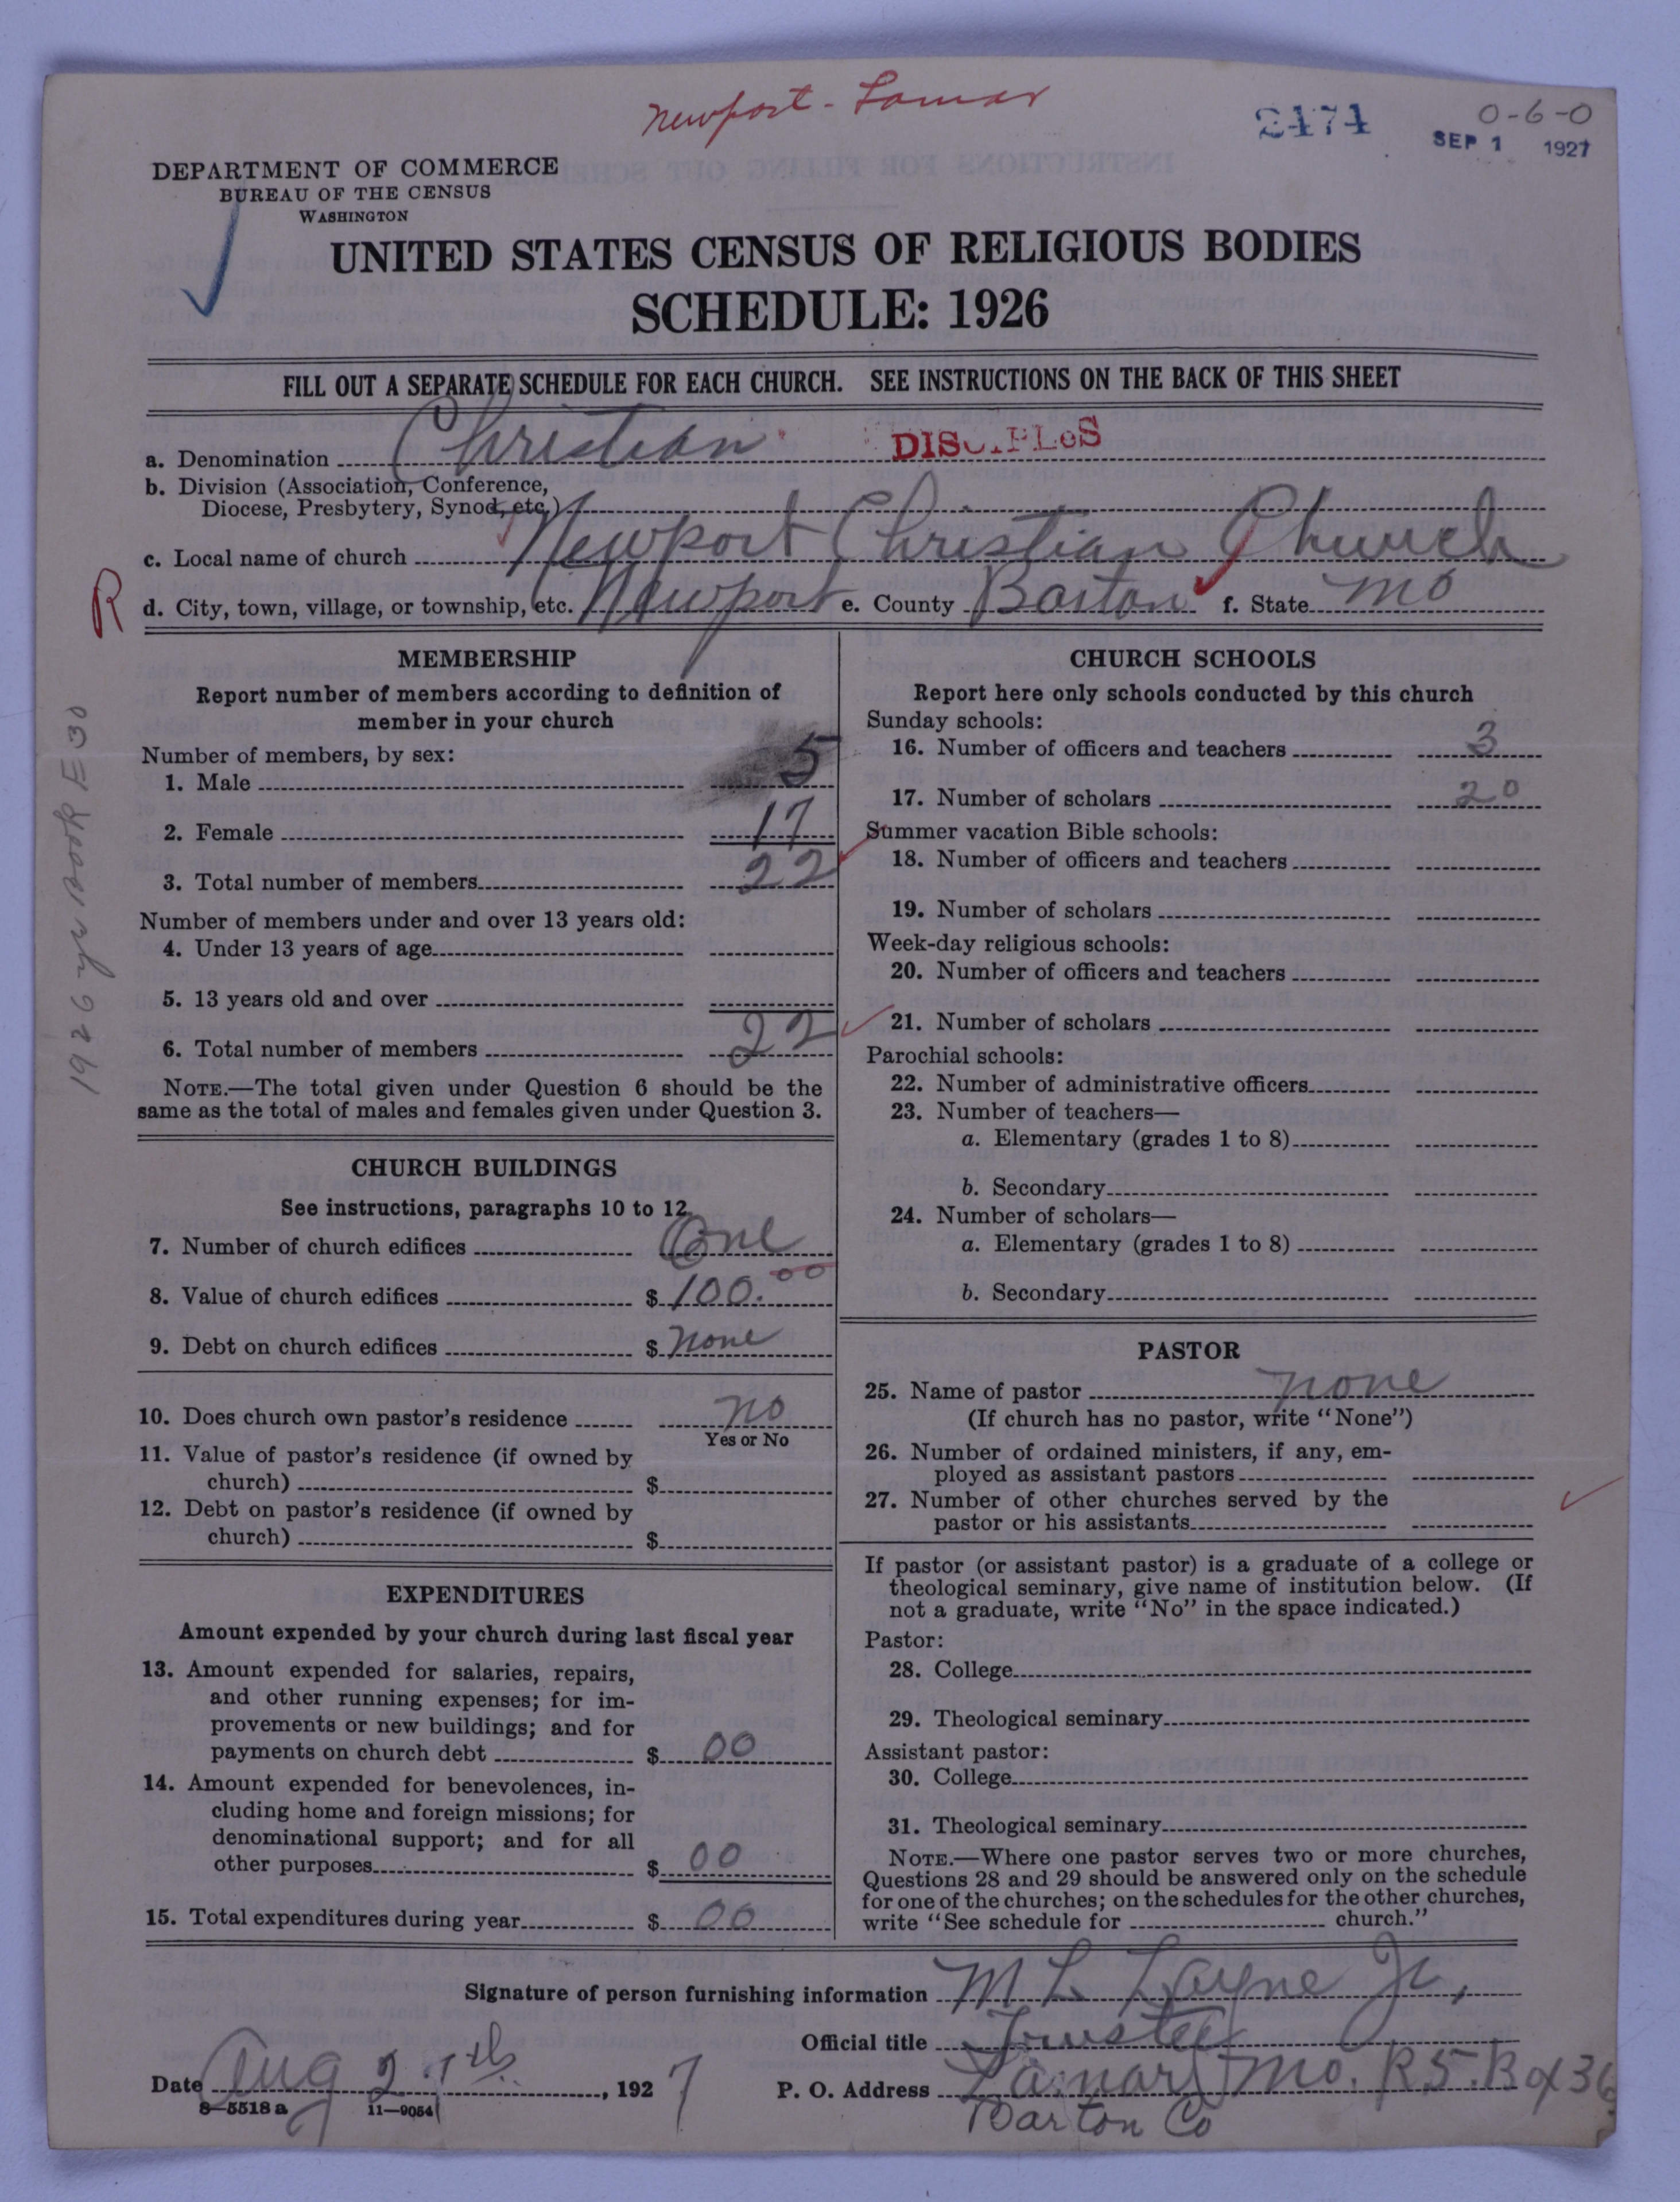 Newport - Lamar
2474
0-6-0
SEP 1 1927
DEPARTMENT OF COMMERCE
BUREAU OF THE CENSUS
WASHINGTON
UNITED STATES CENSUS OF RELIGIOUS BODIES
SCHEDULE: 1926
FILL OUT A SEPARATE SCHEDULE FOR EACH CHURCH. SEE INSTRUCTIONS ON THE BACK OF THIS SHEET
a. Denomination Christian DISCIPLES
b. Division (Association, Conference,
Diocese, Presbytery, Synod, etc.)
c. Local name of church Newport Christian Church
R
d. City, town, village, or township, etc. Newport e. County Barton f. State Mo
1926 yr Book E 30
MEMBERSHIP
Report number of members according to definition of
member in your church
Number of members, by sex:
1. Male 5
2. Female 17
3. Total number of members 22
Number of members under and over 13 years old:
4. Under 13 years of age
5. 13 years old and over
6. Total number of members 22
NOTE.—The total given under Question 6 should be the
same as the total of males and females given under Question 3.
CHURCH BUILDINGS
See instructions, paragraphs 10 to 12.
7. Number of church edifices One
8. Value of church edifices $ 100.00
9. Debt on church edifices $ None
10. Does church own pastor's residence No
Yes or No
11. Value of pastor's residence (if owned by
church) $
12. Debt on pastor's residence (if owned by
church) $
EXPENDITURES
Amount expended by your church during last fiscal year
13. Amount expended for salaries, repairs,
and other running expenses; for im-
provements or new buildings; and for
payments on church debt $ 00
14. Amount expended for benevolences, in-
cluding home and foreign missions; for
denominational support; and for all
other purposes $ 00
15. Total expenditures during year $ 00
CHURCH SCHOOLS
Report here only schools conducted by this church
Sunday schools:
16. Number of officers and teachers 3
17. Number of scholars 20
Summer vacation Bible schools:
18. Number of officers and teachers
19. Number of scholars
Week-day religious schools:
20. Number of officers and teachers
21. Number of scholars
Parochial schools:
22. Number of administrative officers
23. Number of teachers—
a. Elementary (grades 1 to 8)
b. Secondary
24. Number of scholars—
a. Elementary (grades 1 to 8)
b. Secondary
PASTOR
25. Name of pastor none
(If church has no pastor, write "None")
26. Number of ordained ministers, if any, em-
ployed as assistant pastors
27. Number of other churches served by the
pastor or his assistants
If pastor (or assistant pastor) is a graduate of a college or
theological seminary, give name of institution below. (If
not a graduate, write "No" in the space indicated.)
Pastor:
28. College
29. Theological seminary
Assistant pastor:
30. College
31. Theological seminary
NOTE.—Where one pastor serves two or more churches,
Questions 28 and 29 should be answered only on the schedule
for one of the churches; on the schedules for the other churches,
write "See schedule for church."
Signature of person furnishing information M L Layne Jr.,
Official title Trustee
Date Aug 2 , 1927 P. O. Address Lamar Mo. R5. Box 36
8—5518 a 11—9054 Barton Co